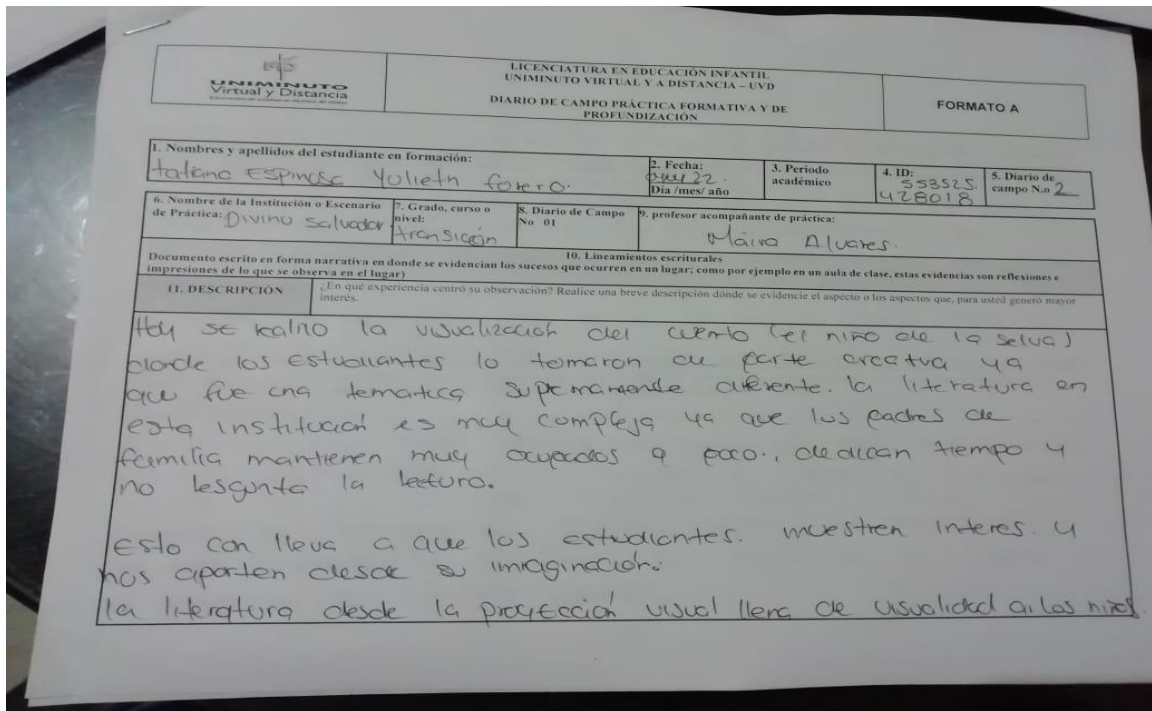 UNIMINUTO
Virtual y Distancia
LICENCIATURA EN EDUCACIÓN INFANTIL
UNIMINUTO VIRTUAL Y A DISTANCIA – UVD
DIARIO DE CAMPO PRÁCTICA FORMATIVA Y DE
PROFUNDIZACIÓN
FORMATO A
1. Nombres y apellidos del estudiante en formación:
tatiana Espinosa Yulieth forero.
2. Fecha:
22.
Día /mes/ año
3. Periodo
académico
4. ID:
553525.
428018
5. Diario de
campo N.o 2
6. Nombre de la Institución o Escenario
de Práctica: Divino Salvador
7. Grado, curso o
nivel:
transición
8. Diario de Campo
No 01
9. profesor acompañante de práctica:
Maira Alvares.
10. Lineamientos escriturales
Documento escrito en forma narrativa en donde se evidencian los sucesos que ocurren en un lugar; como por ejemplo en un aula de clase, estas evidencias son reflexiones e
impresiones de lo que se observa en el lugar)
11. DESCRIPCIÓN
¿En qué experiencia centró su observación? Realice una breve descripción donde se evidencie el aspecto o los aspectos que, para usted generó mayor
interés.
Hoy se realizo la visualización del cuento (el niño de la selva)
donde los Estudiantes lo tomaron de parte creatva ya
que fue una tematica diferente. la literatura en
esta institución es muy compleja ya que los padres de
familia mantienen muy ocupados a poco., dedican tiempo y
no les gusta la lectura.
Esto con lleva a que los estudiantes. muestren interes. y
nos aporten desde su imaginación.
la literatura desde la proyección visual llena de visualidad a los niños.